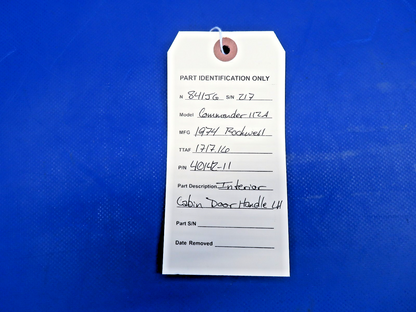 PART IDENTIFICATION ONLY
N 841JG S/N 217
Model Commander 112A
MFG 1974 Rockwell
TTAF 1717.16
P/N 40142-11
Part Description Interior
Cabin Door Handle LH
Part S/N
Date Removed